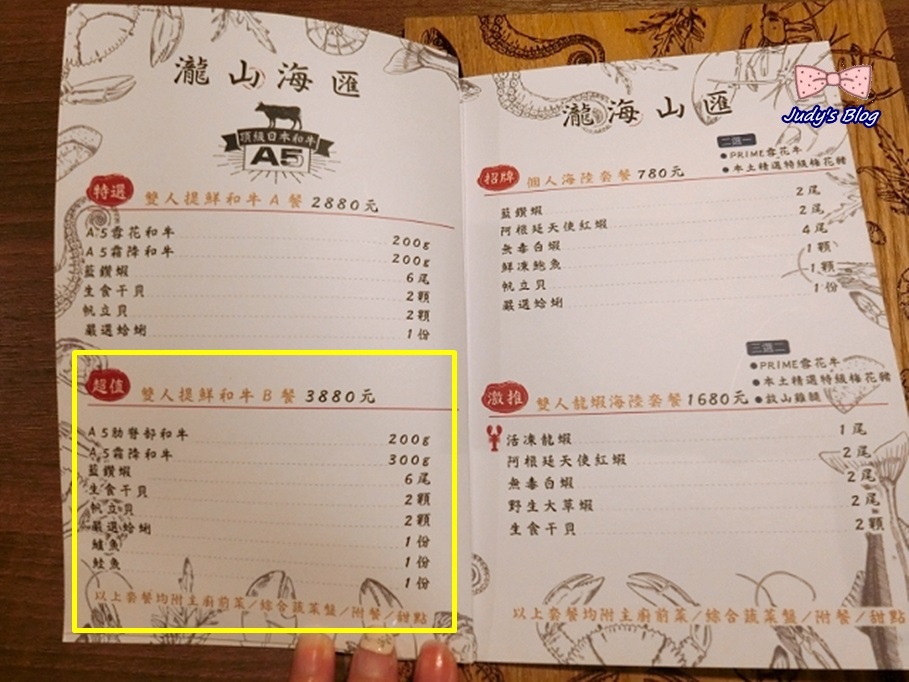 瀧山海匯
頂級日本和牛
A5
特選 雙人提鮮和牛A餐 2880元
A5雪花和牛 200g
A5霜降和牛 200g
藍鑽蝦 6尾
生食干貝 2顆
帆立貝 2顆
嚴選蛤蜊 1份
超值 雙人提鮮和牛B餐 3880元
A5肋脊部和牛 200g
A5霜降和牛 300g
藍鑽蝦 6尾
生食干貝 2顆
帆立貝 2顆
嚴選蛤蜊 1份
鱸魚 1份
鮭魚 1份
以上套餐均附主廚前菜/綜合蔬菜盤/附餐/甜點
瀧海山匯
Judy's Blog
二選一
●PRIME雪花牛
●本土精選特級梅花豬
招牌 個人海陸套餐 780元
藍鑽蝦 2尾
阿根廷天使紅蝦 2尾
無毒白蝦 4尾
鮮凍鮑魚 1顆
帆立貝 1顆
嚴選蛤蜊 1份
三選二
●PRIME雪花牛
●本土精選特級梅花豬
●放山雞腿
激推 雙人龍蝦海陸套餐 1680元
活凍龍蝦 1尾
阿根廷天使紅蝦 2尾
無毒白蝦 2尾
野生大草蝦 2尾
生食干貝 2顆
以上套餐均附主廚前菜/綜合蔬菜盤/附餐/甜點